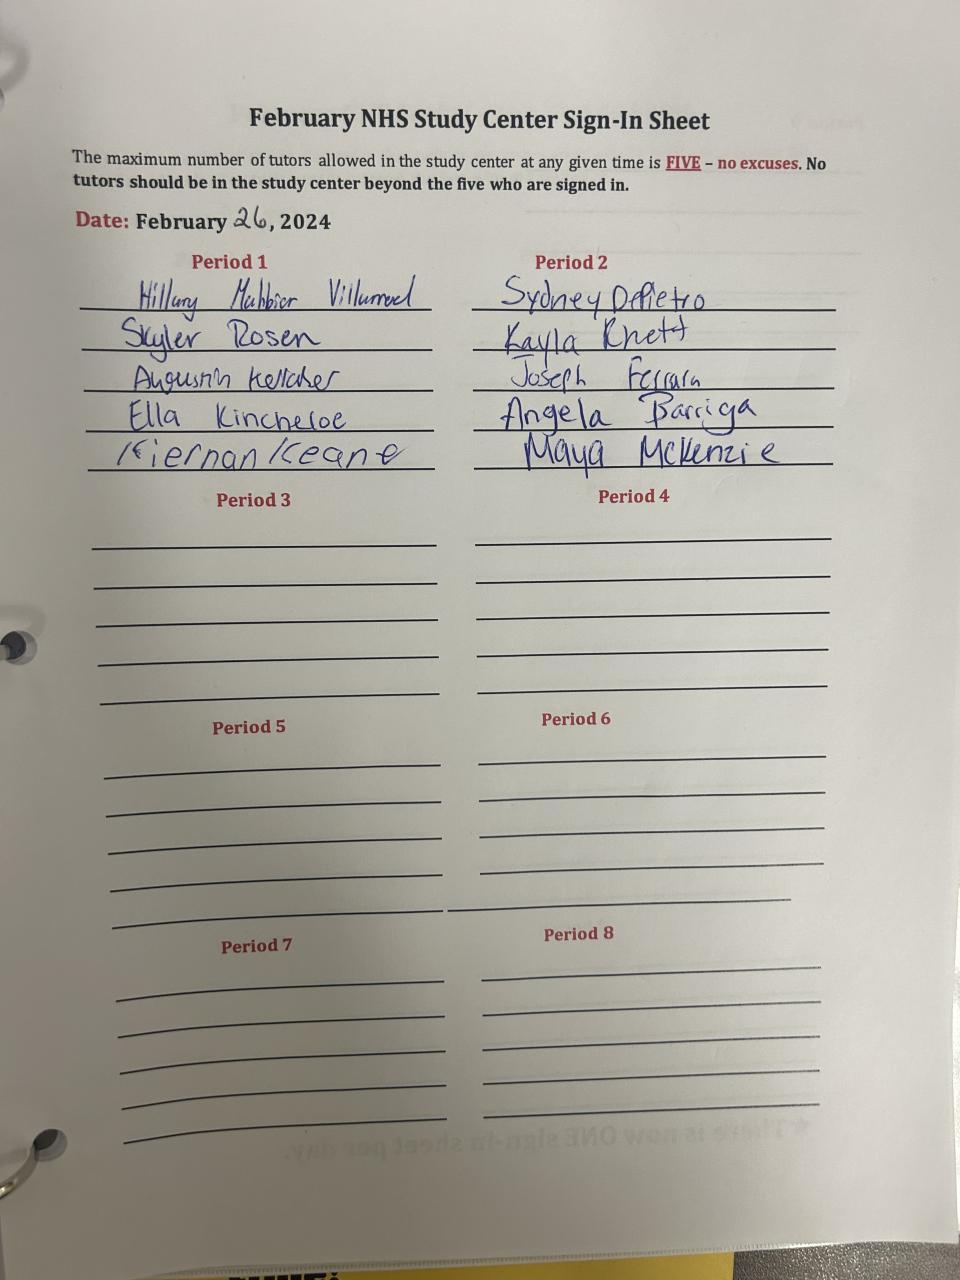 February NHS Study Center Sign-In Sheet
The maximum number of tutors allowed in the study center at any given time is FIVE – no excuses. No
tutors should be in the study center beyond the five who are signed in.
Date: February 26, 2024
Period 1
Hillary Villarroel
Skyler Rosen
Augustin Kelleher
Ella Kincheloe
Kiernan Keane
Period 2
Sydney DePietro
Kayla Rhett
Joseph Ferrara
Angela Barriga
Maya McKenzie
Period 3
Period 4
Period 5
Period 6
Period 7
Period 8
There is now ONE sign-in sheet per day.